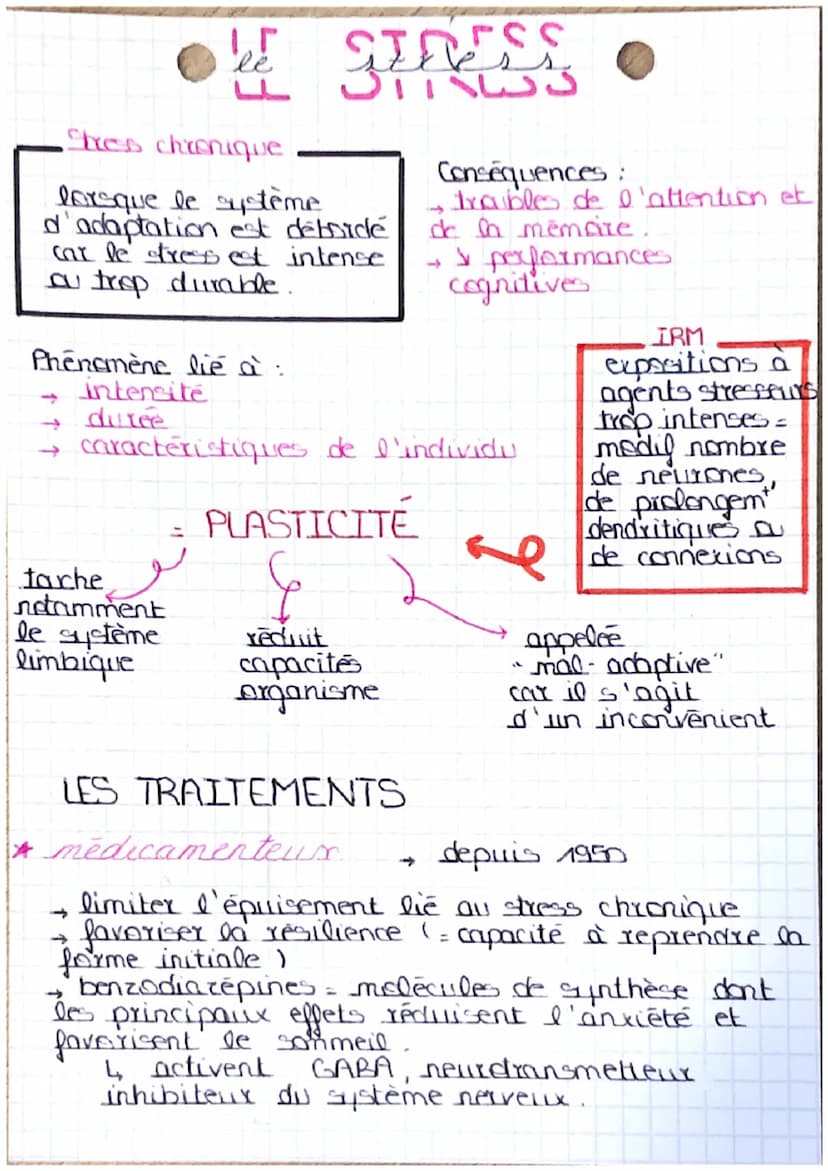 LE STRESS
le stress
Stress chronique
lorsque le système
d'adaptation est débordé
car le stress est intense
ou trop durable.
Conséquences :
→ troubles de l'attention et
de la mémoire.
→ ↘ performances
cognitives
Phénomène lié à :
→ intensité
→ durée
→ caractéristiques de l'individu
IRM
expositions à
agents stresseurs
trop intenses =
modif nombre
de neurones,
de prolongem^t
dendritiques ou
de connexions
= PLASTICITÉ
touche
notamment
le système
limbique
réduit
capacités
organisme
appelée
"mal-adaptive"
car il s'agit
d'un inconvénient
LES TRAITEMENTS
* médicamenteux → depuis 1950
→ limiter l'épuisement lié au stress chronique
→ favoriser la résilience (= capacité à reprendre la
forme initiale)
→ benzodiazépines = molécules de synthèse dont
les principaux effets réduisent l'anxiété et
favorisent le sommeil.
↳ activent GABA, neurotransmetteur
inhibiteur du système nerveux.